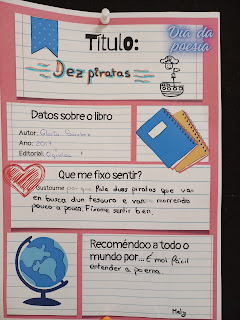 Día da
poesía
Título:
Dez piratas
Datos sobre o libro
Autor: Gloria Sánchez
Ano: 2017
Editorial:
Que me fixo sentir?
Gustoume porque fala duns piratas que van
en busca dun tesouro e van morrendo
pouco a pouco. Fíxome sentir ben.
Recoméndoo a todo o
mundo por... É moi fácil
entender a poema.